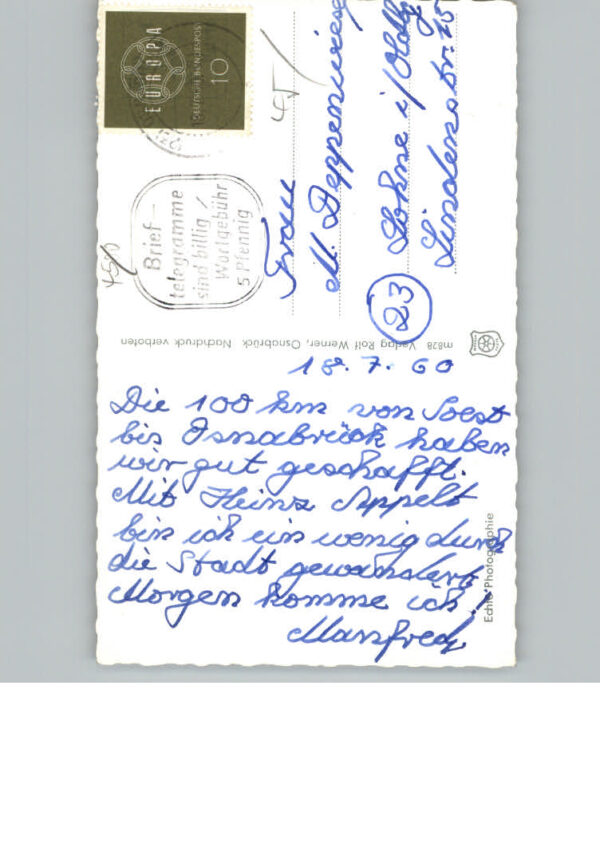 18. 7. 60
Die 100 km von Soest
bis Osnabrück haben
wir gut geschafft.
Mit Heinz Appelt
bin ich ein wenig durch
die Stadt gewandert.
Morgen komme ich!
Manfred
Frau
M. Deppenwiese
(23) Lohne i/Oldbg
Lindenstr. 25
EUROPA
DEUTSCHE BUNDESPOST
10
Brief-
telegramme
sind billig
Wortgebühr
5 Pfennig
m828 Verlag Rolf Werner, Osnabrück. Nachdruck verboten
Echte Photographie